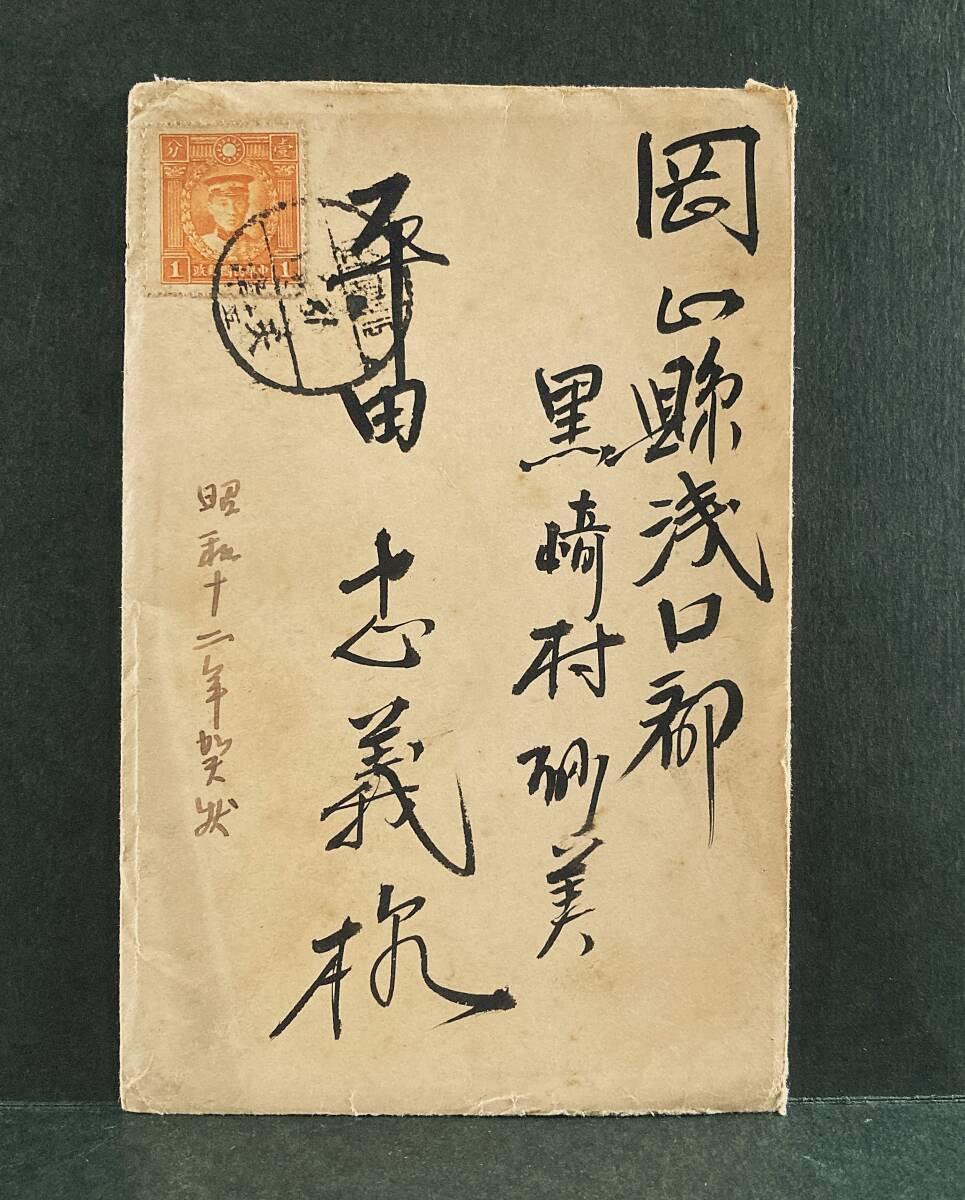 岡山縣浅口郡
黒崎村砂美
田忠義様
昭和十二年賀状
壹分
中華民國郵政
1 1